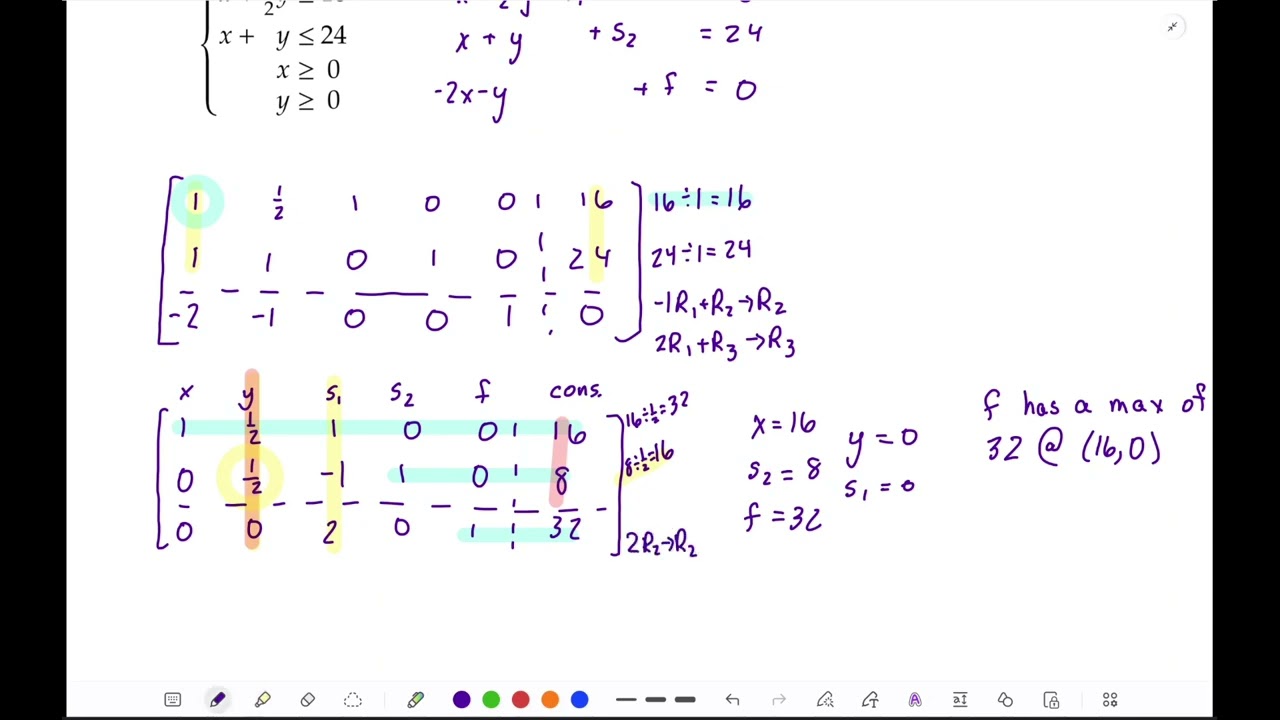 x + y ≤ 24
x ≥ 0
y ≥ 0
x + y + s₂ = 24
-2x-y + f = 0
1 ½ 1 0 0 16
1 1 0 1 0 24
-2 -1 0 0 1 0
16÷1=16
24÷1=24
-1R₁+R₂→R₂
2R₁+R₃→R₃
x y s₁ s₂ f cons.
1 ½ 1 0 0 16
0 ½ -1 1 0 8
0 0 2 0 1 32
16÷½=32
8÷½=16
2R₂→R₂
x=16
s₂=8
f=32
y=0
s₁=0
f has a max of
32 @ (16,0)